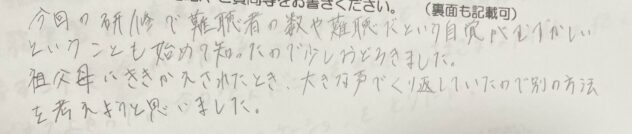 ご質問等をお書きください。 (裏面も記載可)
今回の研修で難聴者の数や難聴だという自覚がむずかしい
ということも始めて知ったので少しおどろきました。
祖父母にききかえされたとき、大きな声でくり返していたので別の方法
を考えようと思いました。